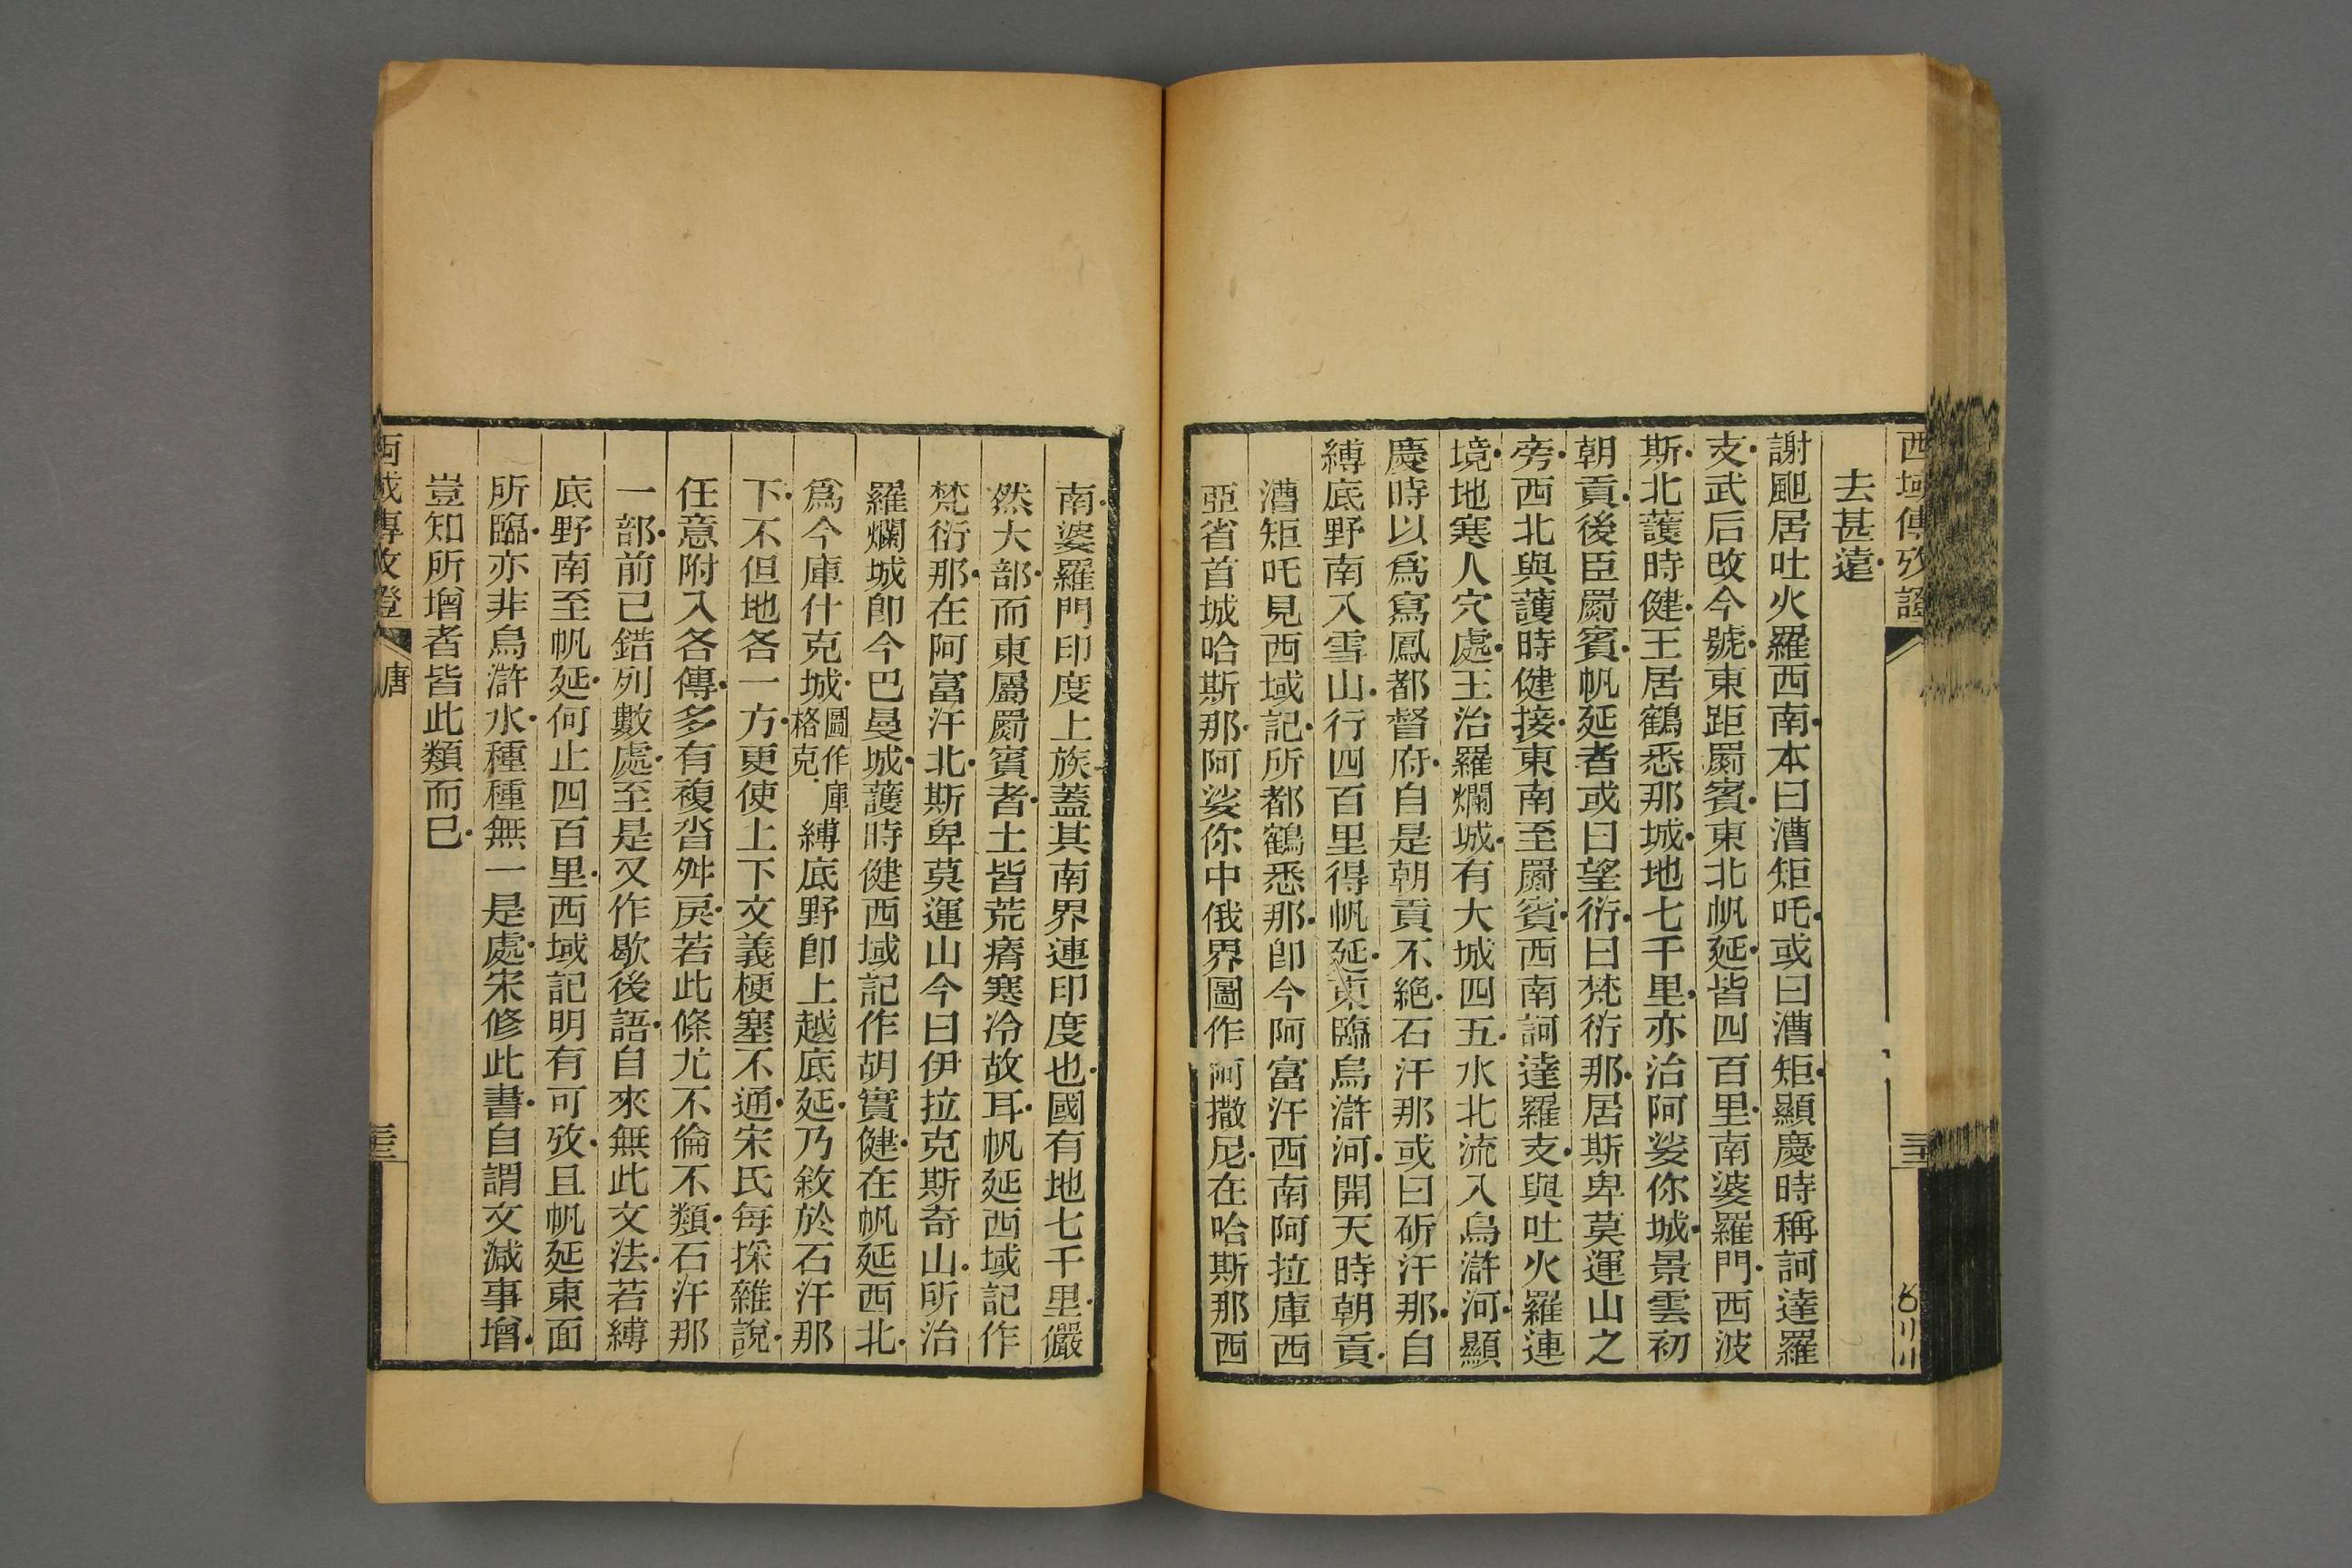 西域傳攷證
三十二
去甚遠
謝䫻居吐火羅西南本曰漕矩吒或曰漕矩顯慶時稱訶達羅
支武后改今號東距罽賓東北帆延皆四百里南婆羅門西波
斯北護時健王居鶴悉那城地七千里亦治阿娑你城景雲初
朝貢後臣罽賓帆延者或曰望衍曰梵衍那居斯卑莫運山之
旁西北與護時健接東南至罽賓西南訶達羅支與吐火羅連
境地寒人穴處王治羅爛城有大城四五水北流入烏滸河顯
慶時以爲寫鳳都督府自是朝貢不絕石汗那或曰斫汗那自
縛底野南入雪山行四百里得帆延東臨烏滸河開天時朝貢
漕矩吒見西域記所都鶴悉那卽今阿富汗西南阿拉庫西
亞省首城哈斯那阿娑你中俄界圖作阿撒尼在哈斯那西
南婆羅門印度上族蓋其南界連印度也國有地七千里儼
然大部而東屬罽賓者土皆荒瘠寒冷故耳帆延西域記作
梵衍那在阿富汗北斯卑莫運山今曰伊拉克斯奇山所治
羅爛城卽今巴曼城護時健西域記作胡實健在帆延西北
爲今庫什克城圖作庫格克縛底野卽上越底延乃敘於石汗那
下不但地各一方更使上下文義梗塞不通宋氏每採雜說
任意附入各傳多有複沓舛戾若此條尤不倫不類石汗那
一部前已錯列數處至是又作歇後語自來無此文法若縛
底野南至帆延何止四百里西域記明有可攷且帆延東面
所臨亦非烏滸水種種無一是處宋修此書自謂文減事增
豈知所增者皆此類而已
西域傳攷證
唐
三十三